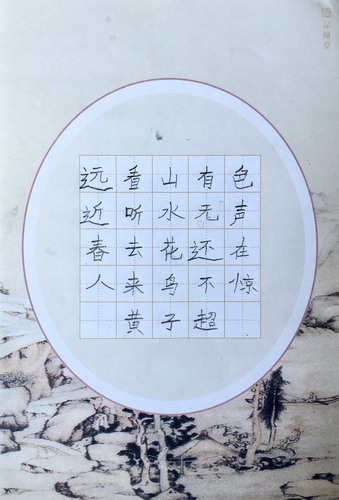 远看山有色
近听水无声
春去花还在
人来鸟不惊
黄子超